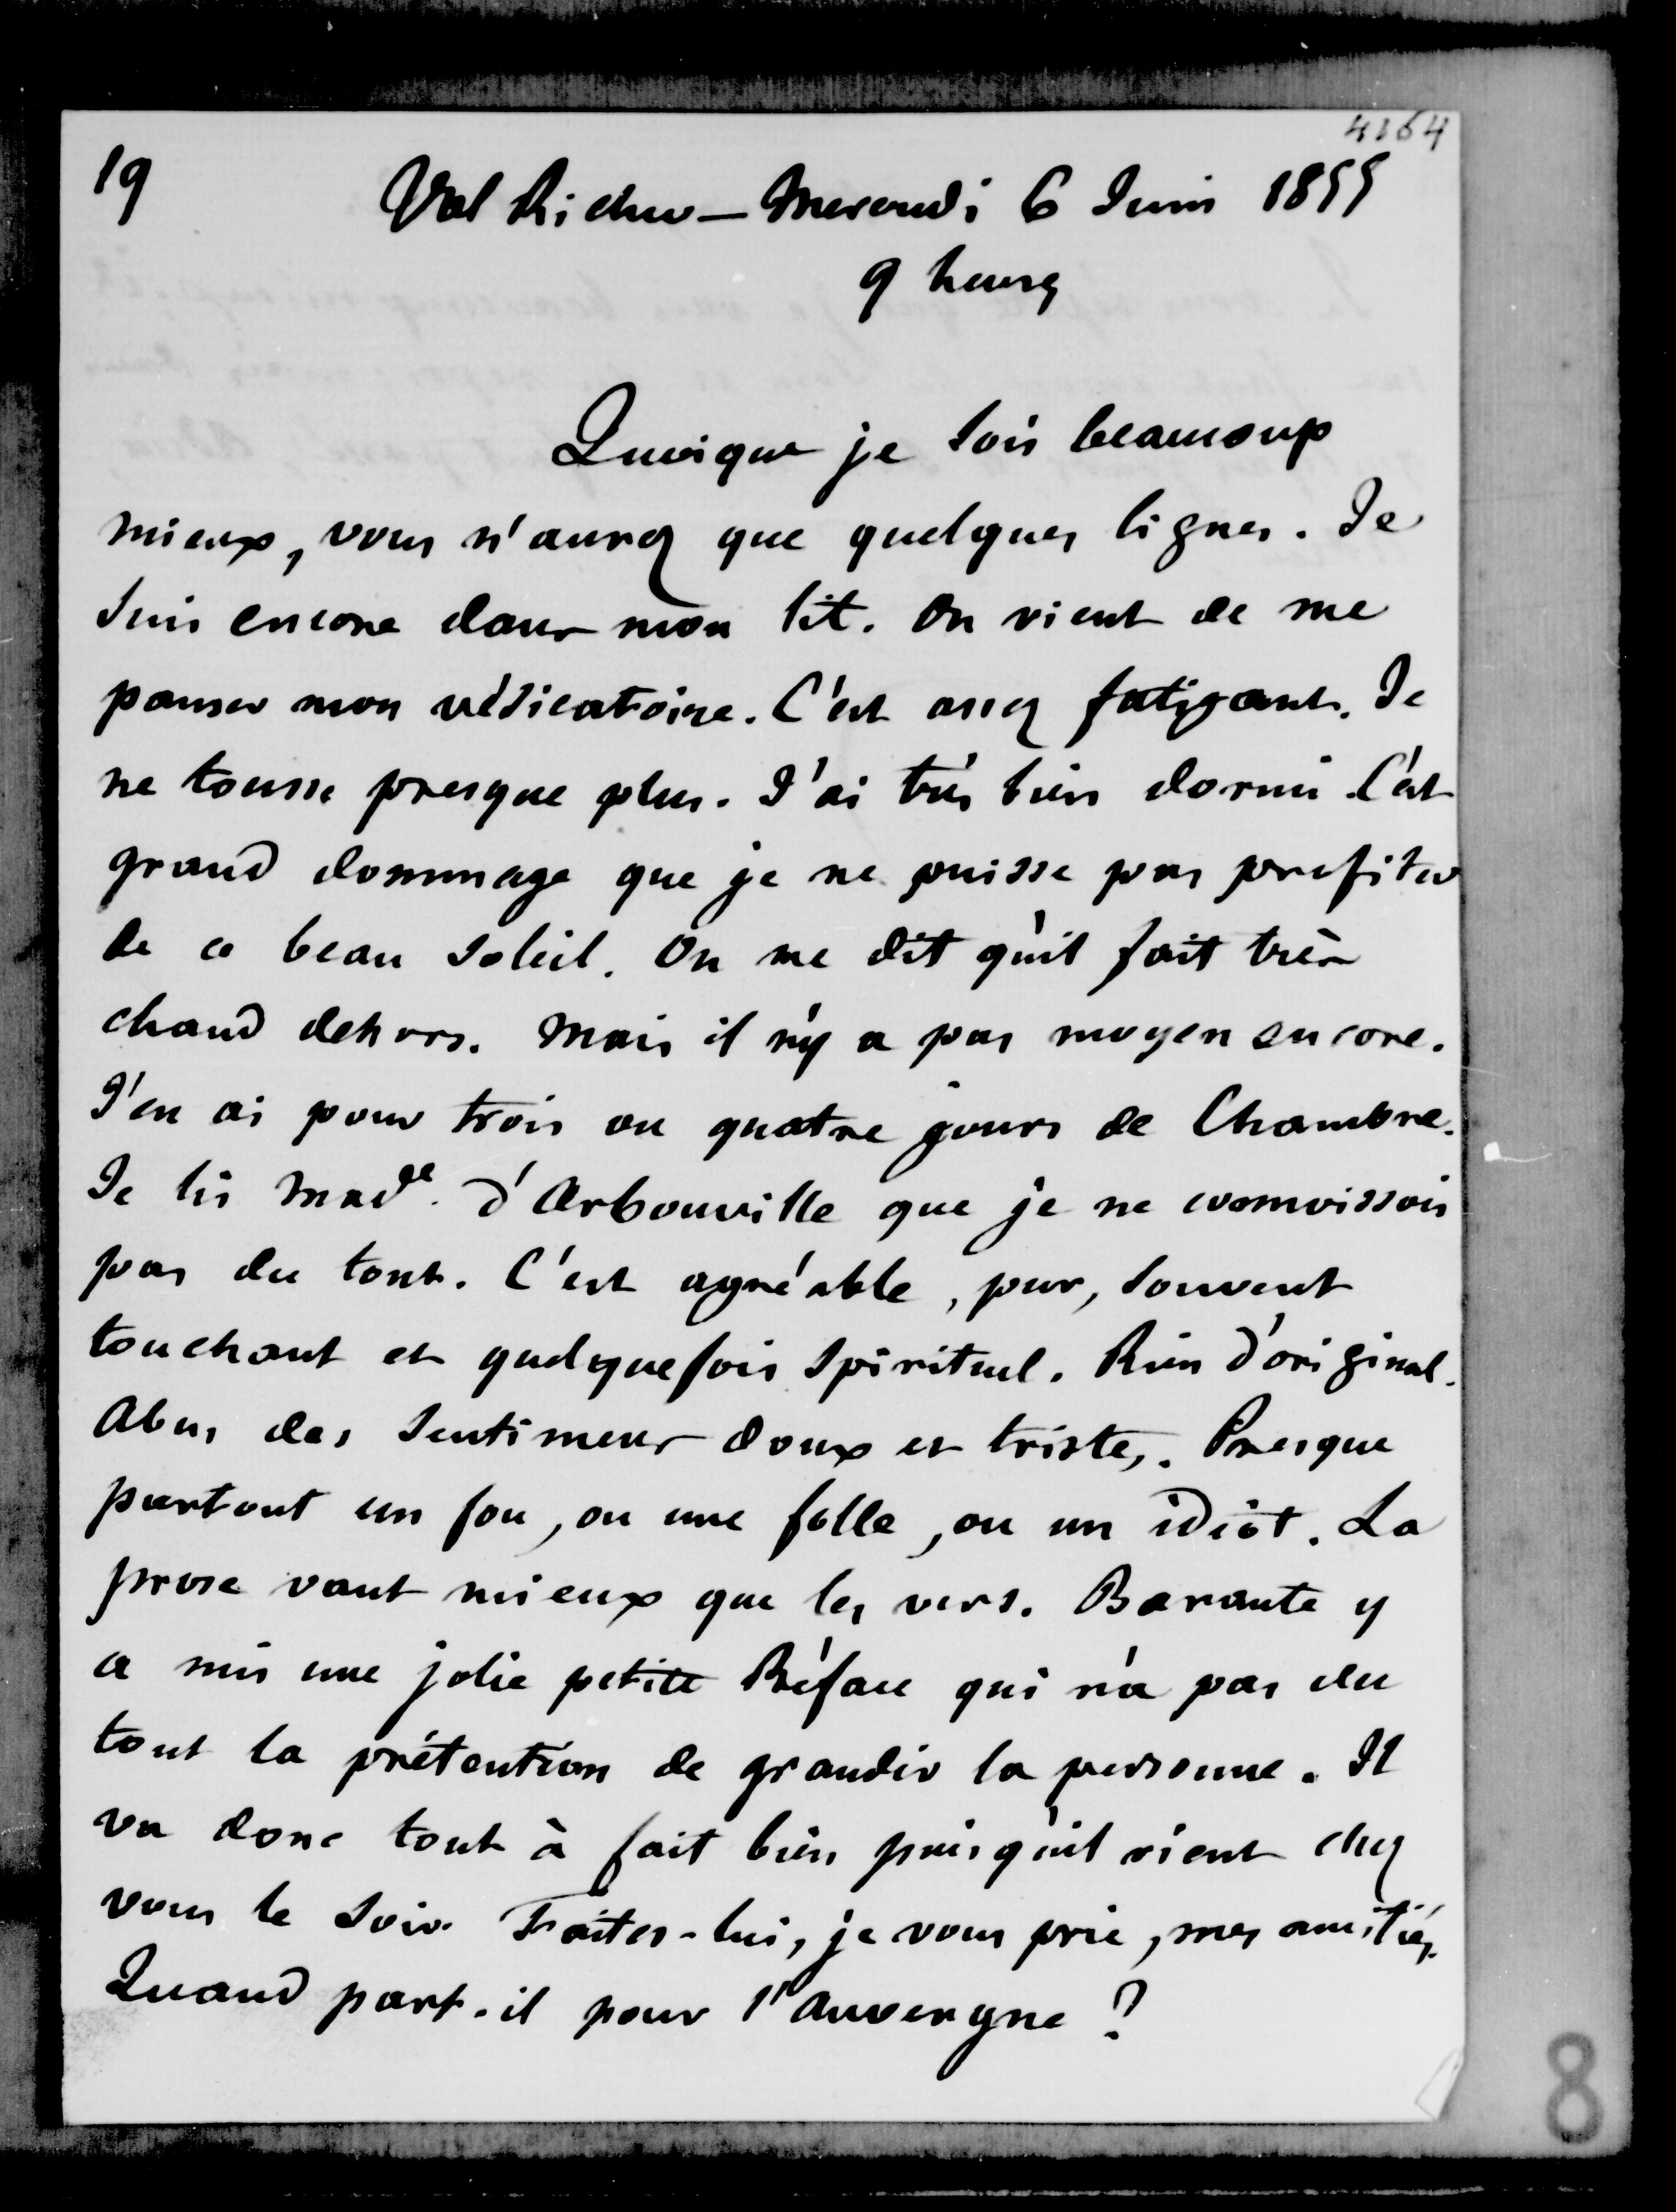 4164
19
Val Richer - Mercredi 6 Juin 1855
9 heures
Quoique je sois beaucoup
mieux, vous n'aurez que quelques lignes. Je
suis encore dans mon lit. On vient de me
panser mon vésicatoire. C'est assez fatigant. Je
ne tousse presque plus. J'ai très bien dormi. C'est
grand dommage que je ne puisse pas profiter
de ce beau soleil. On me dit qu'il fait très
chaud dehors. Mais il n'y a pas moyen encore.
J'en ai pour trois ou quatre jours de Chambre.
Je lis Made. d'Arbouville que je ne connoissois
pas du tout. C'est agréable, pur, souvent
touchant et quelquefois spirituel. Rien d'original.
Abus des sentimens doux et tristes. Presque
partout un fou, ou une folle, ou un idiot. La
prose vaut mieux que les vers. Barante y
a mis une jolie petite Préface qui n'a pas du
tout la prétention de grandir la personne. Il
va donc tout à fait bien puisqu'il vient chez
vous le soir. Faites-lui, je vous prie, mes amitiés.
Quand part-il pour l'Auvergne ?
8